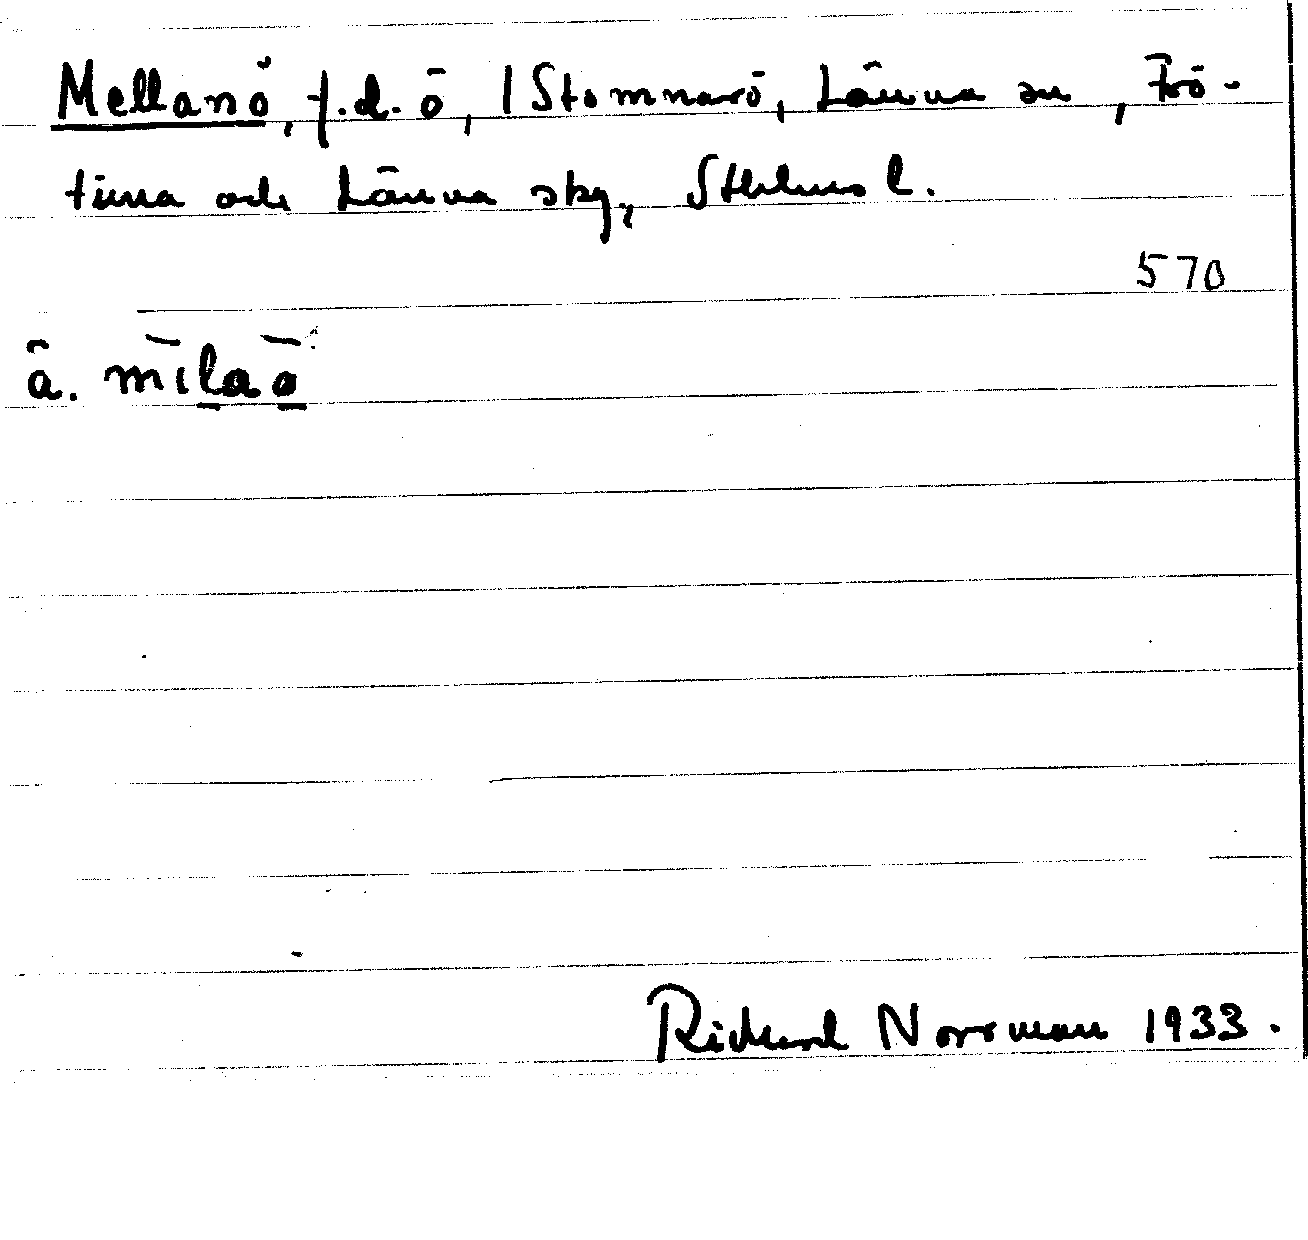 Mellanö, f.d. ö, 1 Stomnarö, Länna sn, Frö-
tuna och Länna sky, Sthlms l.
570
ä. mīlaȫ
Richard Norrman 1933.